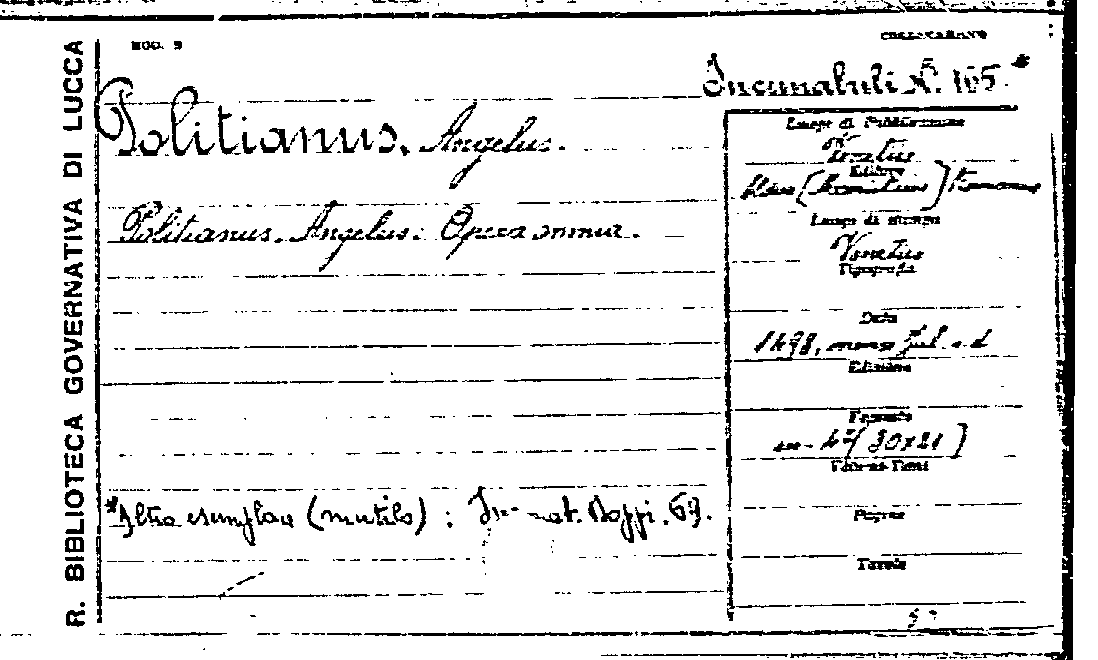 R. BIBLIOTECA GOVERNATIVA DI LUCCA
MOD. 9
COLLOCAZIONE
Incunabuli N. 165 *
Politianus, Angelus.
Politianus, Angelus: Opera omnia.
Luogo di Pubblicazione
Venetiis
Editore
Romanus
Luogo di stampa
Venetiis
Tipografia
Data
1498, mense Jul.
Edizione
Formato
in-4° (30x21)
Volume-Tomi
Pagine
Tavole
*Altro esemplare (mutilo) : 69.